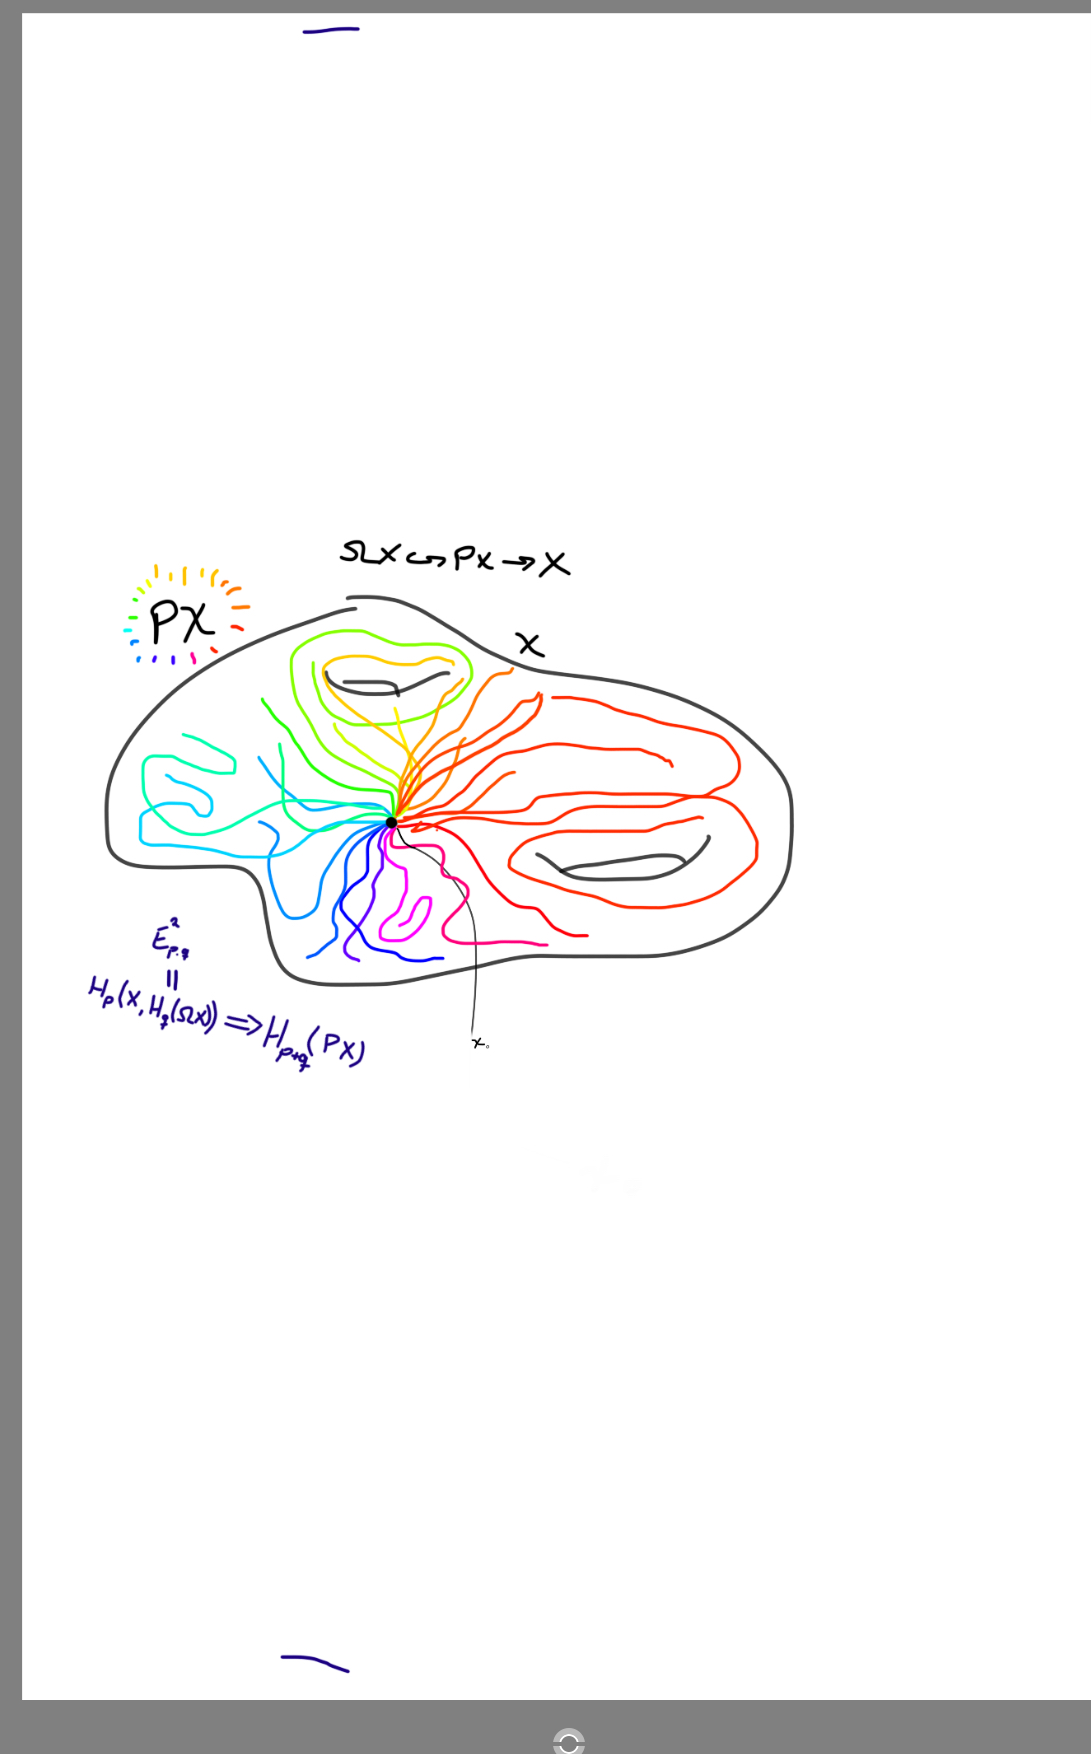 ΩX ↪ PX → X
PX
X
E²p,q
||
Hp(X, Hq(ΩX)) ⇒ Hp+q(PX)
x₀